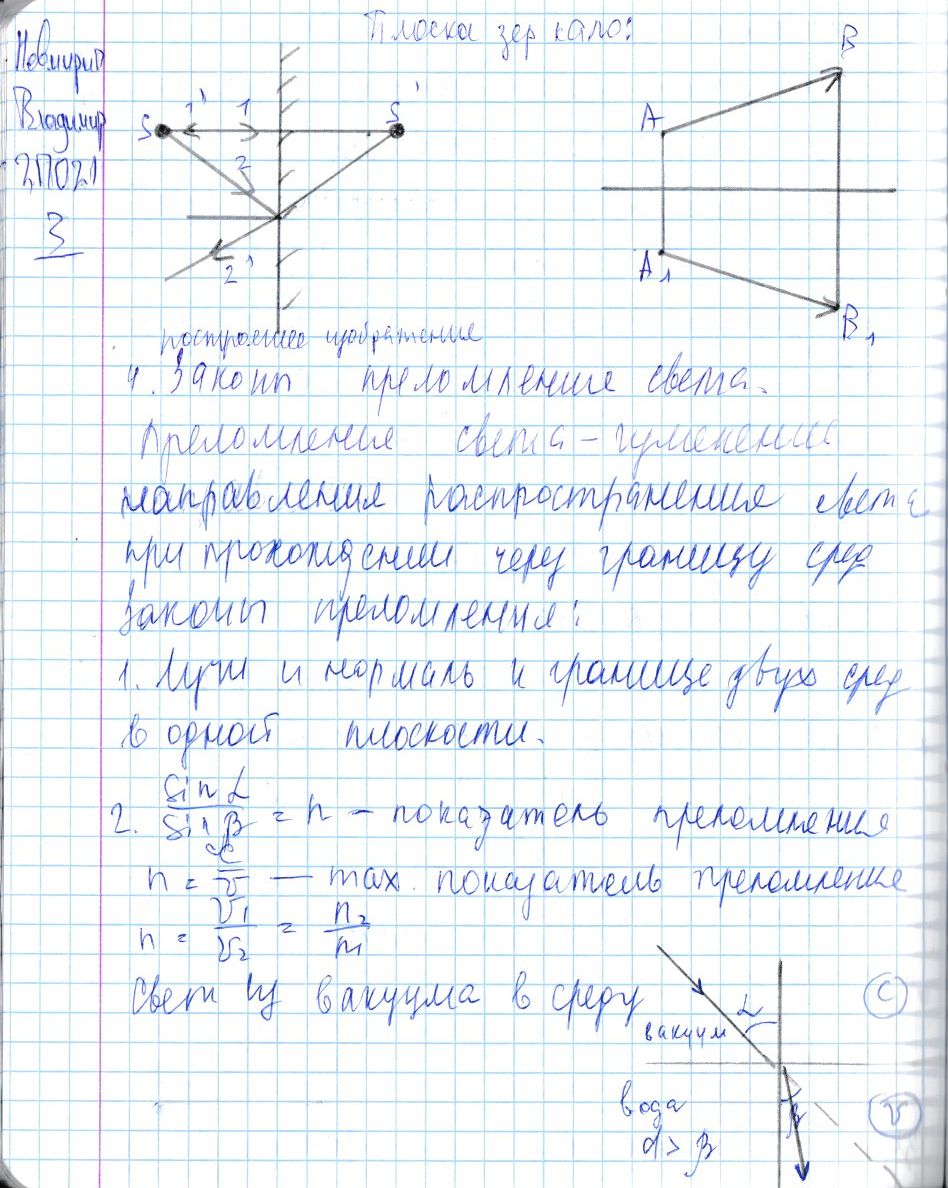 Плоска зеркало:
Владимир
2П021
3
S 1' 1 S'
2
2'
A B
A1 B1
построение изображения
4. Законы преломление света.
Преломления света – изменение
направления распространения света
при прохождении через границу сред
Законы преломления:
1. Лучи и нормаль к границе двух сред
в одной плоскости.
2. sin α / sin β = n – показатель преломления
n = c / v — max. показатель преломление
n = v1 / v2 = n2 / n1
Свет из вакуума в среду
α
вакуум
c
β
вода
v
α > β